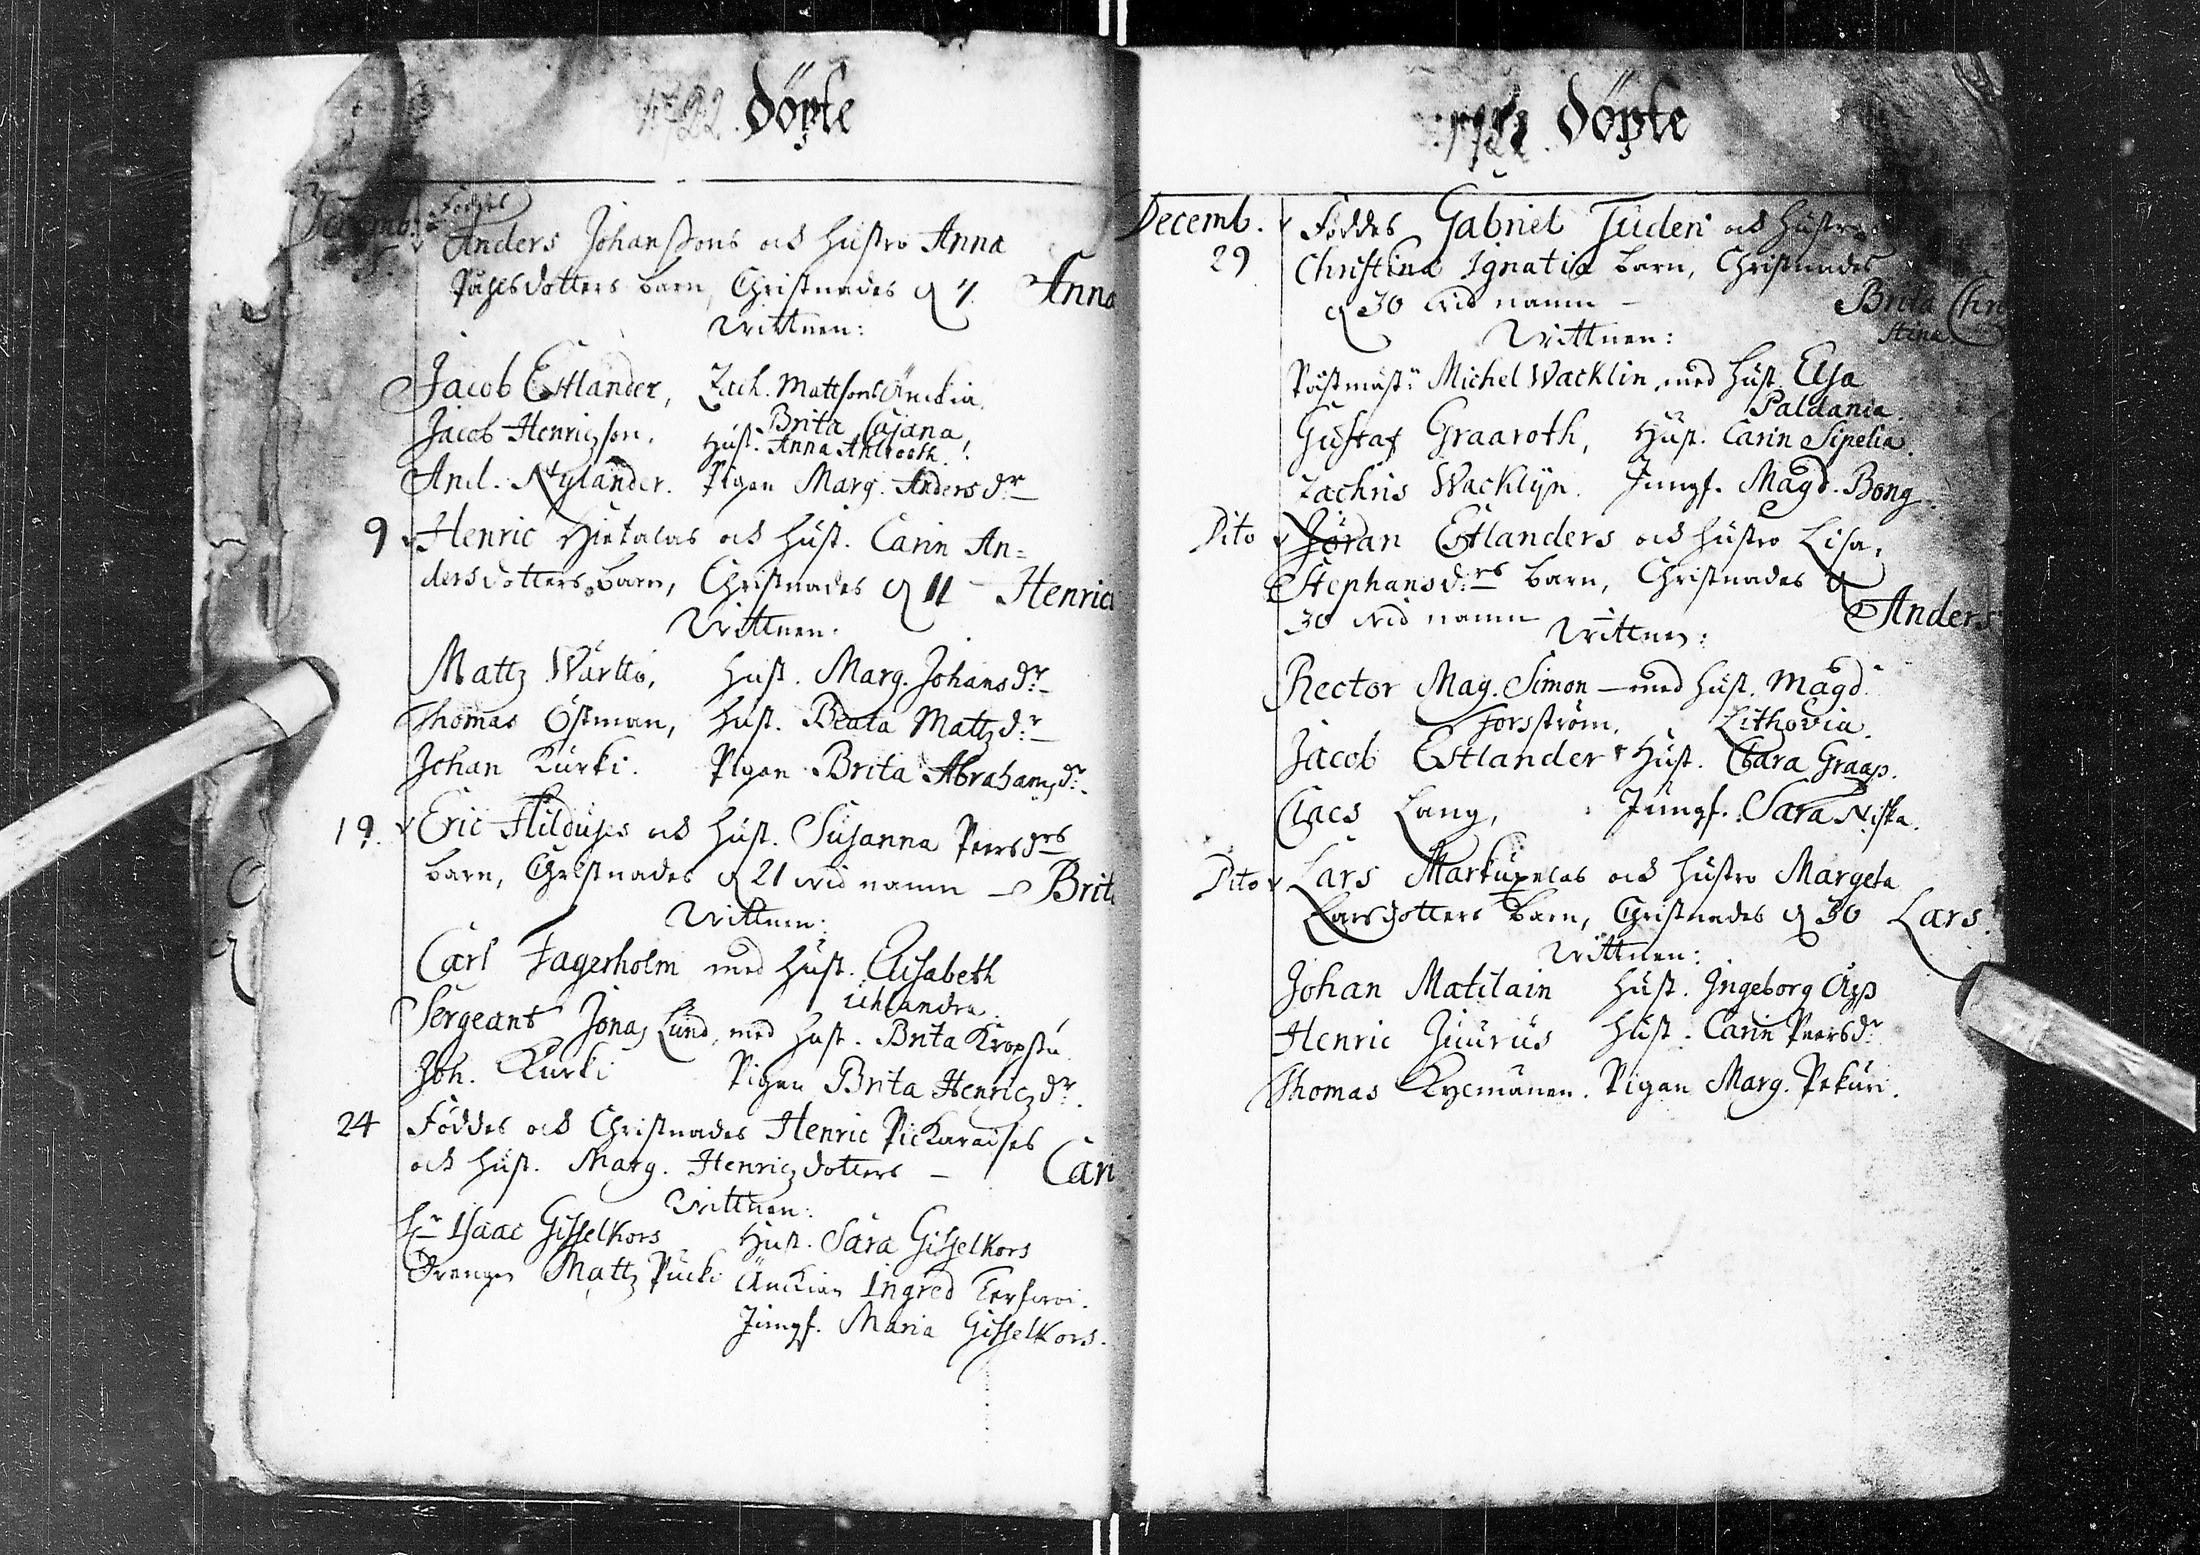 1722. döpte
Decemb. Föddes
Anders Johanssons och hustro Anna
Påhlsdotters barn, Christnades d 7. Anna
Wittnen:
Jacob Estlander, Zach. Mattsons Änckia
Brita Cajana,
Jacob Henricsson. Hust. Anna Ahlrooth.
And. Nylander. Pigan Marg. Anders dr
9 Henric Hietalas och Hust. Carin An=
dersdotters barn, Christnades d 11 Henric
Wittnen.
Mattz Warttö, Hust. Marg. Johansdr
Thomas Östman, Hust. Beata Mattzdr
Johan Kurki. Pigan Brita Abrahamsdr.
19. Eric Hilduses och Hust. Susanna Peersdrs
barn, Christnades d 21 wid namn Brit
Wittnen:
Carl Fagerholm med Hust. Elisabeth
Uhlandra.
Sergeant Jonas Lund, med Hust. Brita Kropsu
Joh. Kurki Pigan Brita Henriczdr.
24 Föddes och Christnades Henric Pickaraises
och Hust. Marg. Henriczdotters Cari
Wittnen.
Hr Isaac Gisselkors Hust. Sara Gisselkors
Drengen Mattz Pucki Änckian Ingred
Jungf. Maria Gisselkors.
1722. döpte
Decemb. Föddes Gabriel Tuderi och Hustro
29 Christina Ignatia barn, Christnades
d 30 wid namn Brita Chri
stina
Wittnen:
Påstmäst: Michel Wacklin, med Hust. Elsa
Paldania.
Gustaf Graaroth, Hust. Carin Sipelia.
Zachris Wacklyn. Jungf. Magd. Bong.
Dito Jöran Estlanders och Hustro Lisa
Stephansd:rs barn, Christnades d
30 wid namn Anders
Wittnen:
Rector Mag. Simon med Hust. Magd.
Forsström. Lithovia.
Jacob Estlander Hust. Clara Graap.
Claes Lang, Jungf. Sara Niska.
Dito Lars Markuxelas och Hustro Margeta
Larsdotters barn, Christnades d 30 Lars.
Wittnen:
Johan Matilain Hust. Ingeborg
Henric Juurus Hust. Carin Peersdr
Thomas Kycmänen. Pigan Marg. Pekuri.